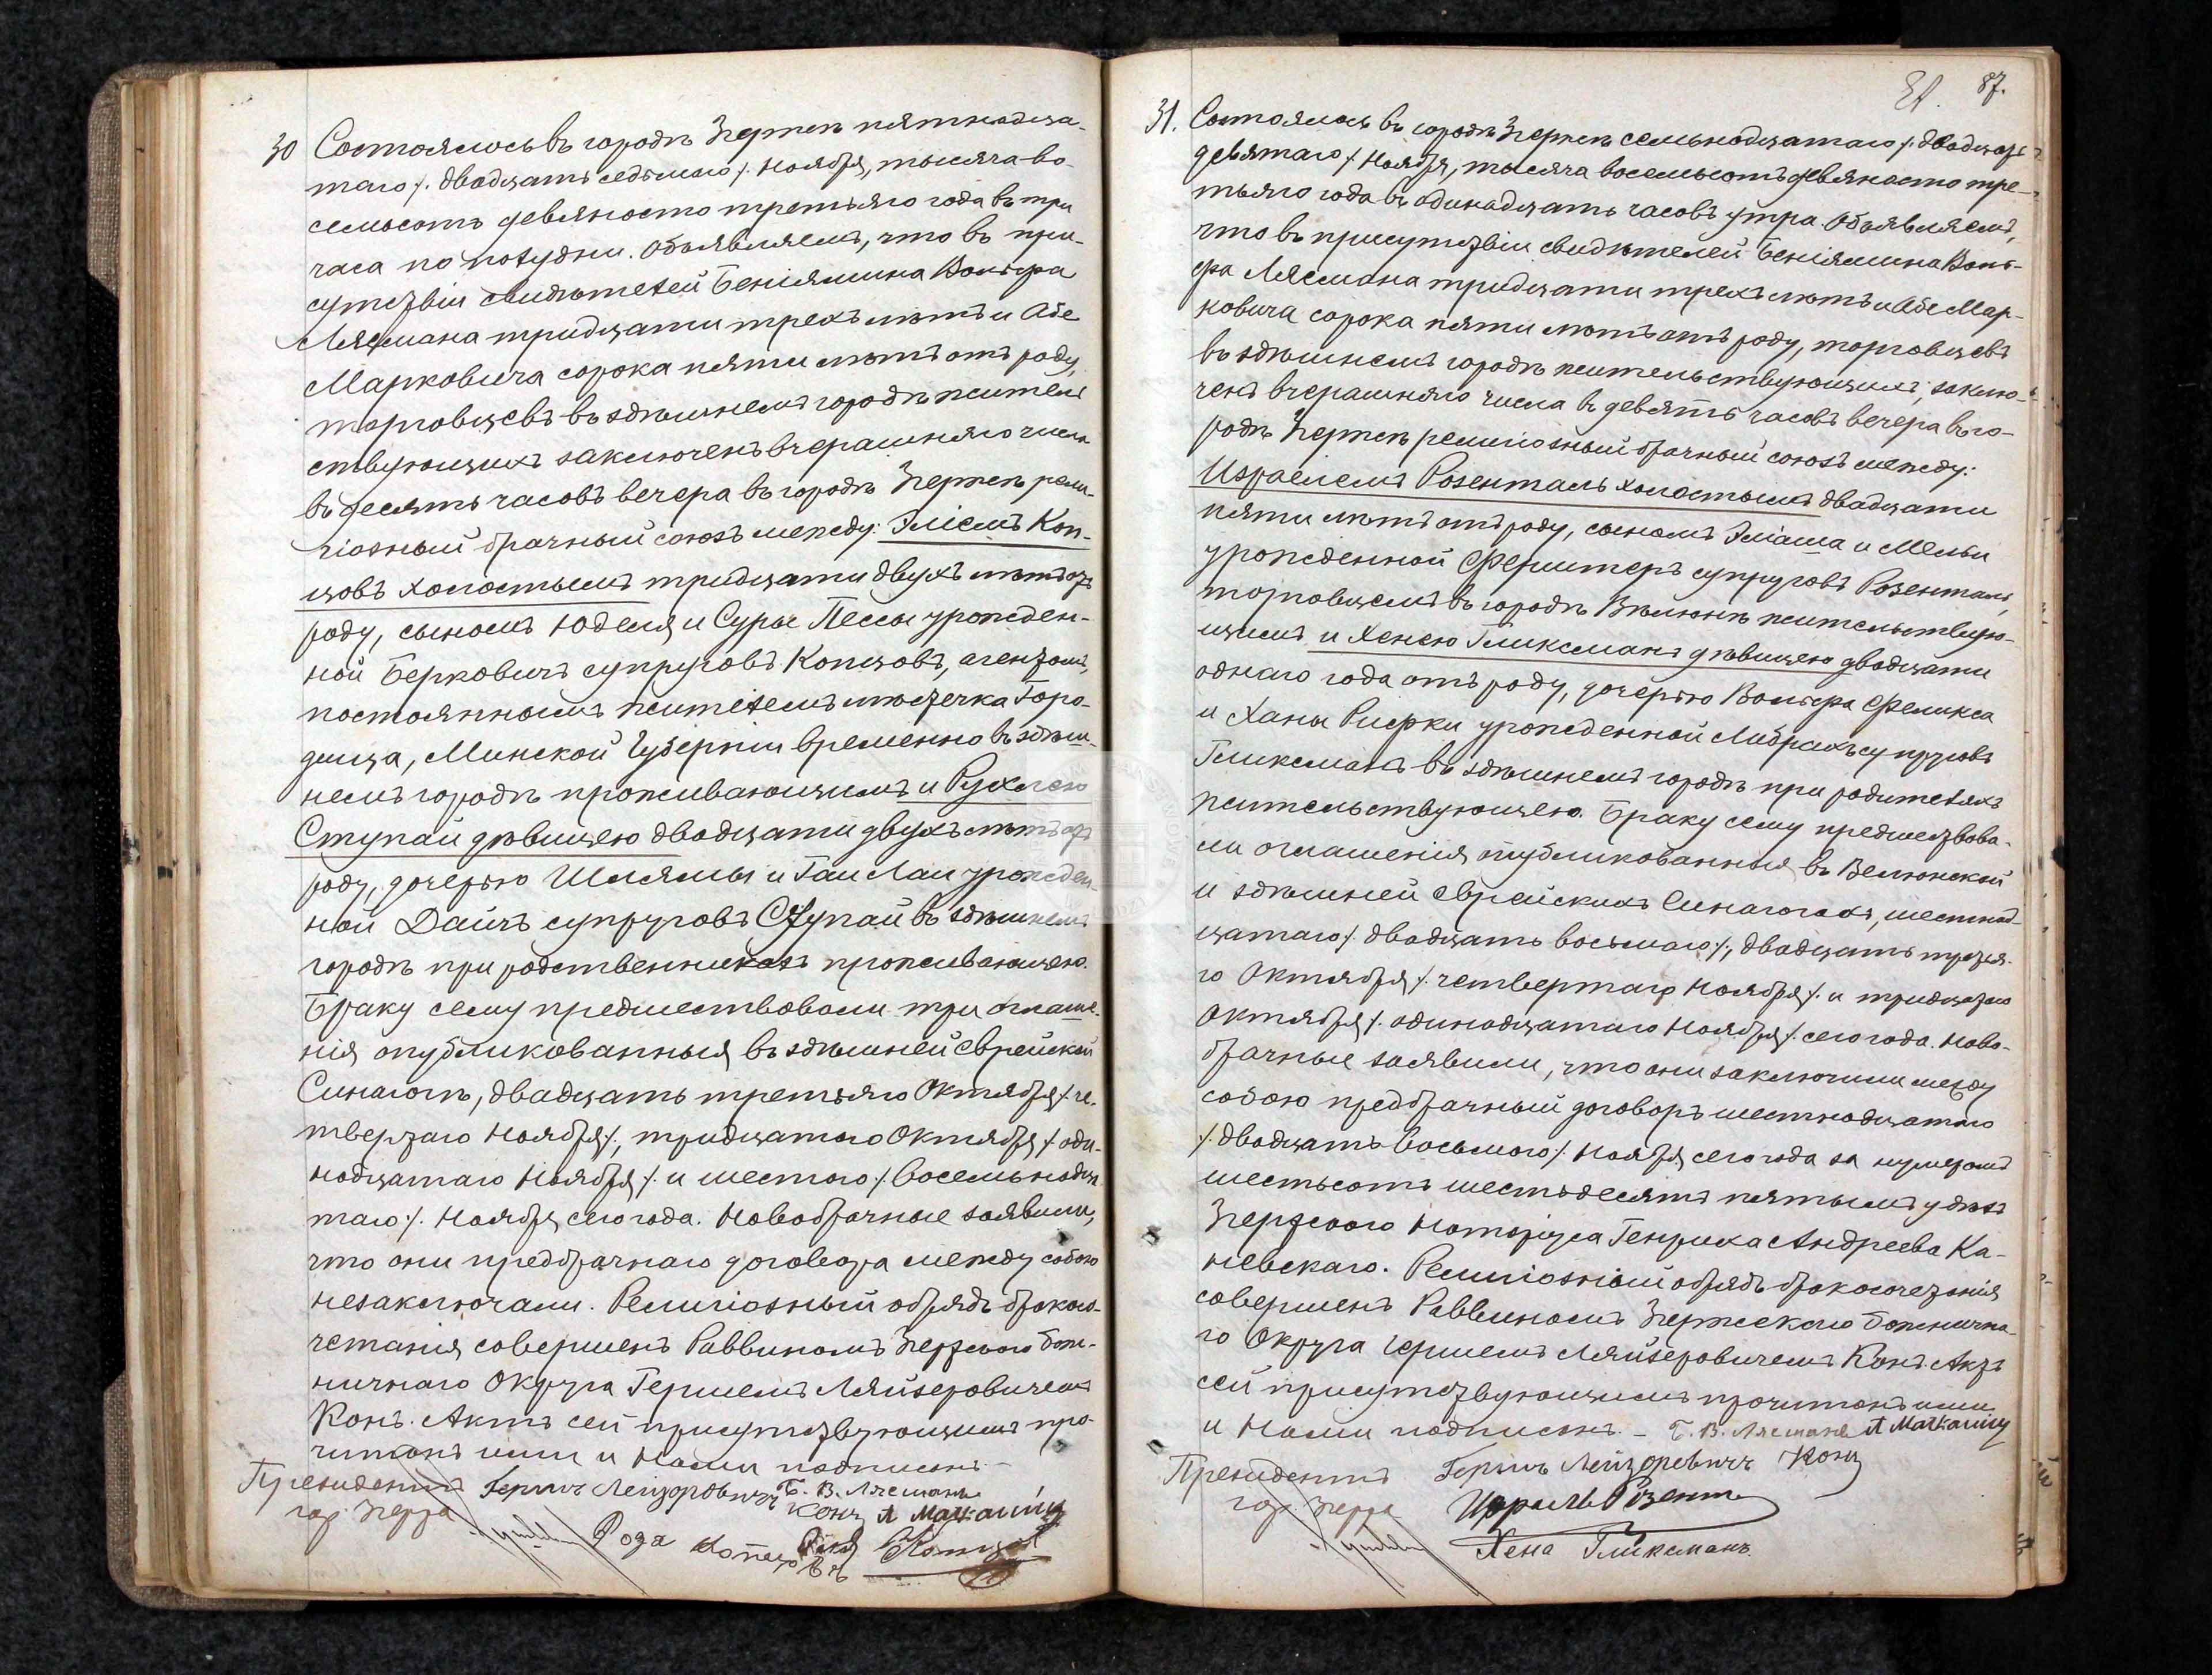 30 Состоялось въ городѣ Згержѣ пятнадца-
таго /. двадцать седьмаго /. Ноября, тысяча во-
семьсотъ девяносто третьяго года въ три
часа по полудни. Объявляемъ, что въ при-
сутствіи свидѣтелей Беніямина Вольфа
Лясмана тридцати трехъ лѣтъ и Абе
Марковича сорока пяти лѣтъ отъ роду,
торговцевъ въ здѣшнемъ городѣ жительс
ствующихъ заключенъ вчерашняго числа
въ десять часовъ вечера въ городѣ Згержѣ рели-
гіозный брачный союзъ между: Эліемъ Коп-
цовъ холостымъ тридцати двухъ лѣтъ отъ
роду, сыномъ Юделя и Суры Пессы урожден-
ной Берковичъ супруговъ Копцовъ, агентомъ,
постояннымъ жителемъ мѣстечка Горо-
дища, Минской Губерніи временно въ здѣш-
немъ городѣ проживающимъ и Рухлею
Ступай дѣвицею двадцати двухъ лѣтъ отъ
роду, дочерью Шлямы и Гаи Лаи урожден-
ной Дайчъ супруговъ Ступай въ здѣшнемъ
городѣ при родственникахъ проживающею.
Браку сему предшествовали три оглаше-
нія опубликованныя въ здѣшней Еврейской
Синагогѣ, двадцать третьяго Октября /. че-
твертаго Ноября /., тридцатаго Октября /. оди-
надцатаго Ноября /. и шестого /. восемьнадца
таго /. Ноября сего года. Новобрачные заявили,
что они предбрачнаго договора между собою
незаключали. Религіозный обрядъ бракосо-
четанія совершенъ Раввиномъ Згержскаго Бож-
ничнаго Округа Гершемъ Ляйзеровичемъ
Конъ. Актъ сей присутствующимъ про-
читанъ ими и Нами подписанъ.
Президентъ Гершъ Лейзоровичъ Б. В. Лясманъ
гор. Згержа Конъ А Маркович
Рода Копцовъ Копцовъ
87.
31. Состоялось въ городѣ Згержѣ семьнадцатаго /. двадцать
девятаго /. Ноября, тысяча восемьсотъ девяносто тре-
тьяго года въ одинадцать часовъ утра. Объявляемъ,
что въ присутствіи свидѣтелей Беніямина Воль-
фа Лясмана тридцати трехъ лѣтъ и Абе Мар-
ковича сорока пяти лѣтъ отъ роду, торговцевъ
въ здѣшнемъ городѣ жительствующихъ, заклю-
ченъ вчерашняго числа въ девять часовъ вечера въ го-
родѣ Згержѣ религіозный брачный союзъ между:
Израелемъ Розенталь холостымъ двадцати
пяти лѣтъ отъ роду, сыномъ Эліаша и Мельи
урожденной Ферштеръ супруговъ Розенталь,
торговцемъ въ городѣ Вѣлюнѣ жительствую-
щимъ и Хенею Гликсманъ дѣвицею двадцати
однаго года отъ роду, дочерью Вольфа Феликса
и Ханы Рифки урожденной Либрахъ супруговъ
Гликсманъ въ здѣшнемъ городѣ при родителяхъ
жительствующею. Браку сему предшествова-
ли оглашенія опубликованныя въ Велюнской
и здѣшней Еврейскихъ Синагогахъ, шестнад-
цатаго /. двадцать восьмаго /., двадцать третья-
го Октября /. четвертаго Ноября /. и тридцатаго
Октября /. одинадцатаго Ноября /. сего года. Ново-
брачные заявили, что они заключили между
собою предбрачный договоръ шестнадцатаго
/. двадцать восьмого /. Ноября сего года за нумеромъ
шестьсотъ шестьдесятъ пятымъ у
Згержскаго Нотаріуса Генриха Андреева Ка-
невскаго. Религіозный обрядъ бракосочетанія
совершенъ Раввиномъ Згержскаго Божнична-
го Округа Гершемъ Ляйзеровичемъ Конъ. Актъ
сей присутствующимъ прочитанъ ими
и Нами подписанъ. – Б. В. Лясманъ А Маркович
Президентъ Гершъ Лейзоревичъ Конъ
гор. Згержа Израель Розент
Хена Гликсманъ.